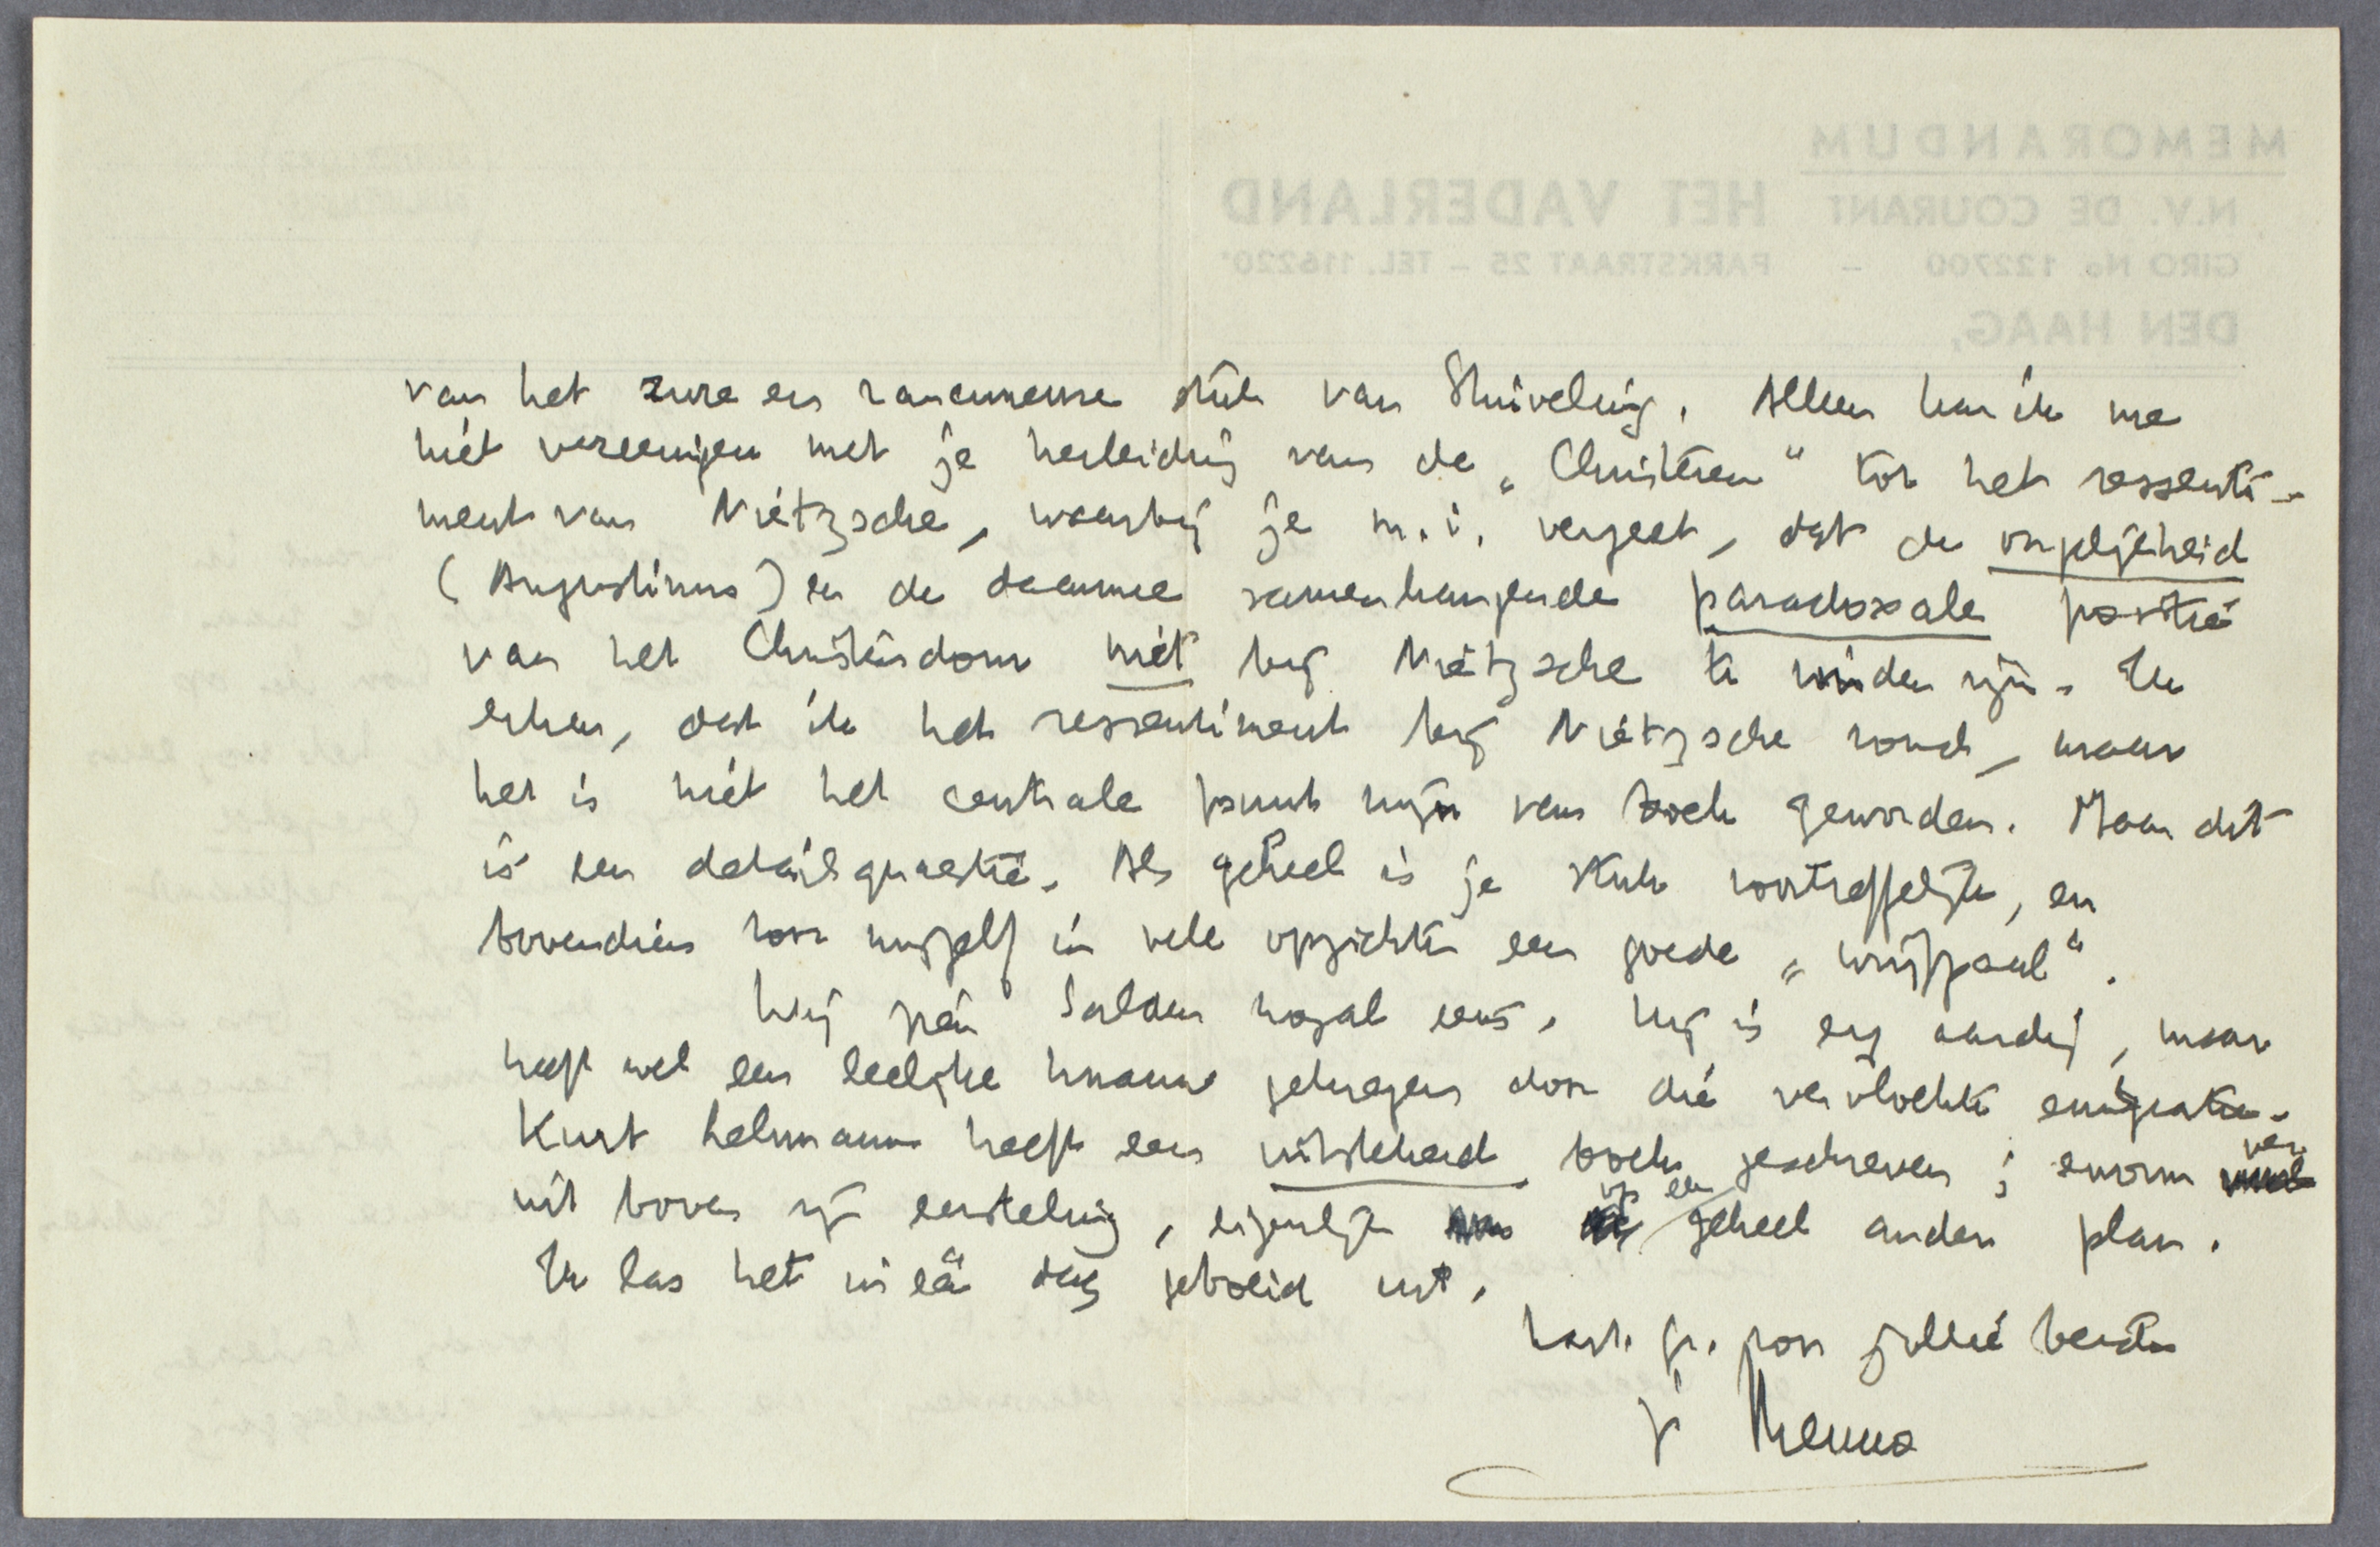 van het zure en rancuneuse stuk van Stuiveling. Alleen kan ik me
niet vereenigen met je herleiding van de „Christenen“ tot het ressenti-
ment van Nietzsche, waarbij je m.i. vergeet, dat de ongelijkheid
(Augustinus) en de daarmee samenhangende paradoxale positie
van het Christendom niet bij Nietzsche te vinden zijn. Ik
erken, dat ik het ressentiment bij Nietzsche vond, maar
het is niet het centrale punt mijn van boek geworden. Maar dit
is een detailquaestie. Als geheel is je stuk voortreffelijk, en
bovendien voor mijzelf in vele opzichten een goede „wrijfpaal“.
Wij zien Salden nogal eens. Hij is erg aardig, maar
heeft wel een leelijke knauw gekregen door die vervloekte emigratie.
Kurt Lehmann heeft een uitstekend boek geschreven; enorm ver
uit boven zijn eersteling, eigenlijk op een geheel ander plan.
Ik las het in één dag geboeid uit.
hart. gr. voor jullie beiden
je Menno
MEMORANDUM
N.V. DE COURANT HET VADERLAND
GIRO No. 122700 - PARKSTRAAT 25 - TEL. 116220*
DEN HAAG,